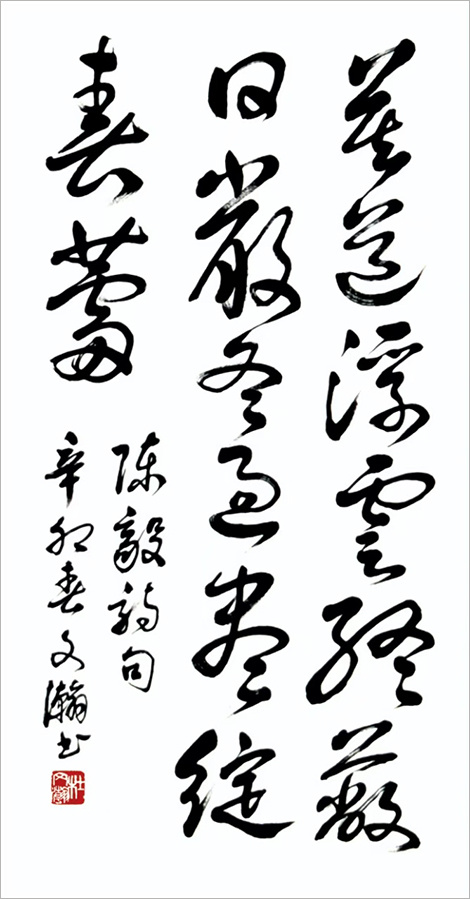 莫道浮云终蔽
日严冬过尽绽
春蕾
陈毅诗句
辛卯春文瀚书
杜文瀚